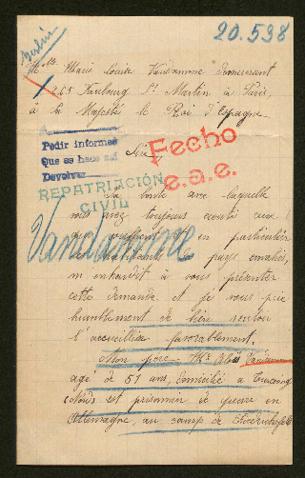 20.538
Berlin
Melle Marie Louise Vandamme demeurant
265 Faubourg St Martin à Paris,
à Sa Majesté le Roi d'Espagne.
Pedir informes
Que se hace así
Devolver
Sire
Fecho
e.a.e.
REPATRIACIÓN
CIVIL
La bonté avec laquelle
vous avez toujours écouté ceux
qui souffrent en particulier
les habitants des pays envahis,
m'enhardit à vous présenter
cette demande et je vous prie
humblement de bien vouloir
Vandamme
l'accueillir favorablement.
Mon père Mr Vandamme
agé de 51 ans, domicilié à Tourcoing
(Nord) est prisonnier de guerre en
Allemagne, au camp de